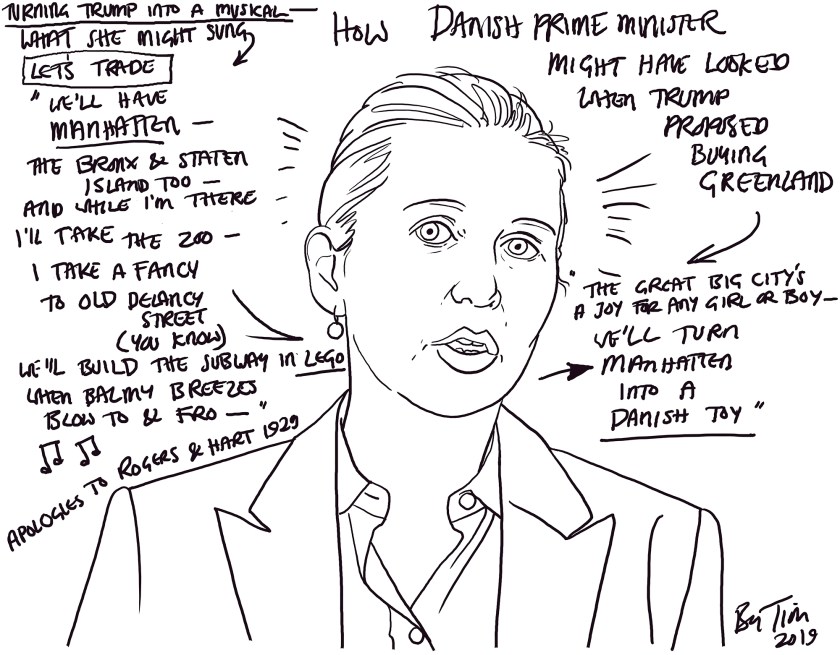 TURNING TRUMP INTO A MUSICAL —
WHAT SHE MIGHT SUNG
LET'S TRADE
"WE'LL HAVE
MANHATTEN —
THE BRONX & STATEN
ISLAND TOO —
AND WHILE I'M THERE
I'LL TAKE THE ZOO —
I TAKE A FANCY
TO OLD DELANCY
STREET
(YOU KNOW)
WE'LL BUILD THE SUBWAY IN LEGO
WHEN BALMY BREEZES
BLOW TO & FRO — "
APOLOGIES TO ROGERS & HART 1929
HOW DANISH PRIME MINISTER
MIGHT HAVE LOOKED
WHEN TRUMP
PROPOSED
BUYING
GREENLAND
"THE GREAT BIG CITY'S
A JOY FOR ANY GIRL OR BOY —
WE'LL TURN
MANHATTEN
INTO A
DANISH TOY"
By Tim
2019